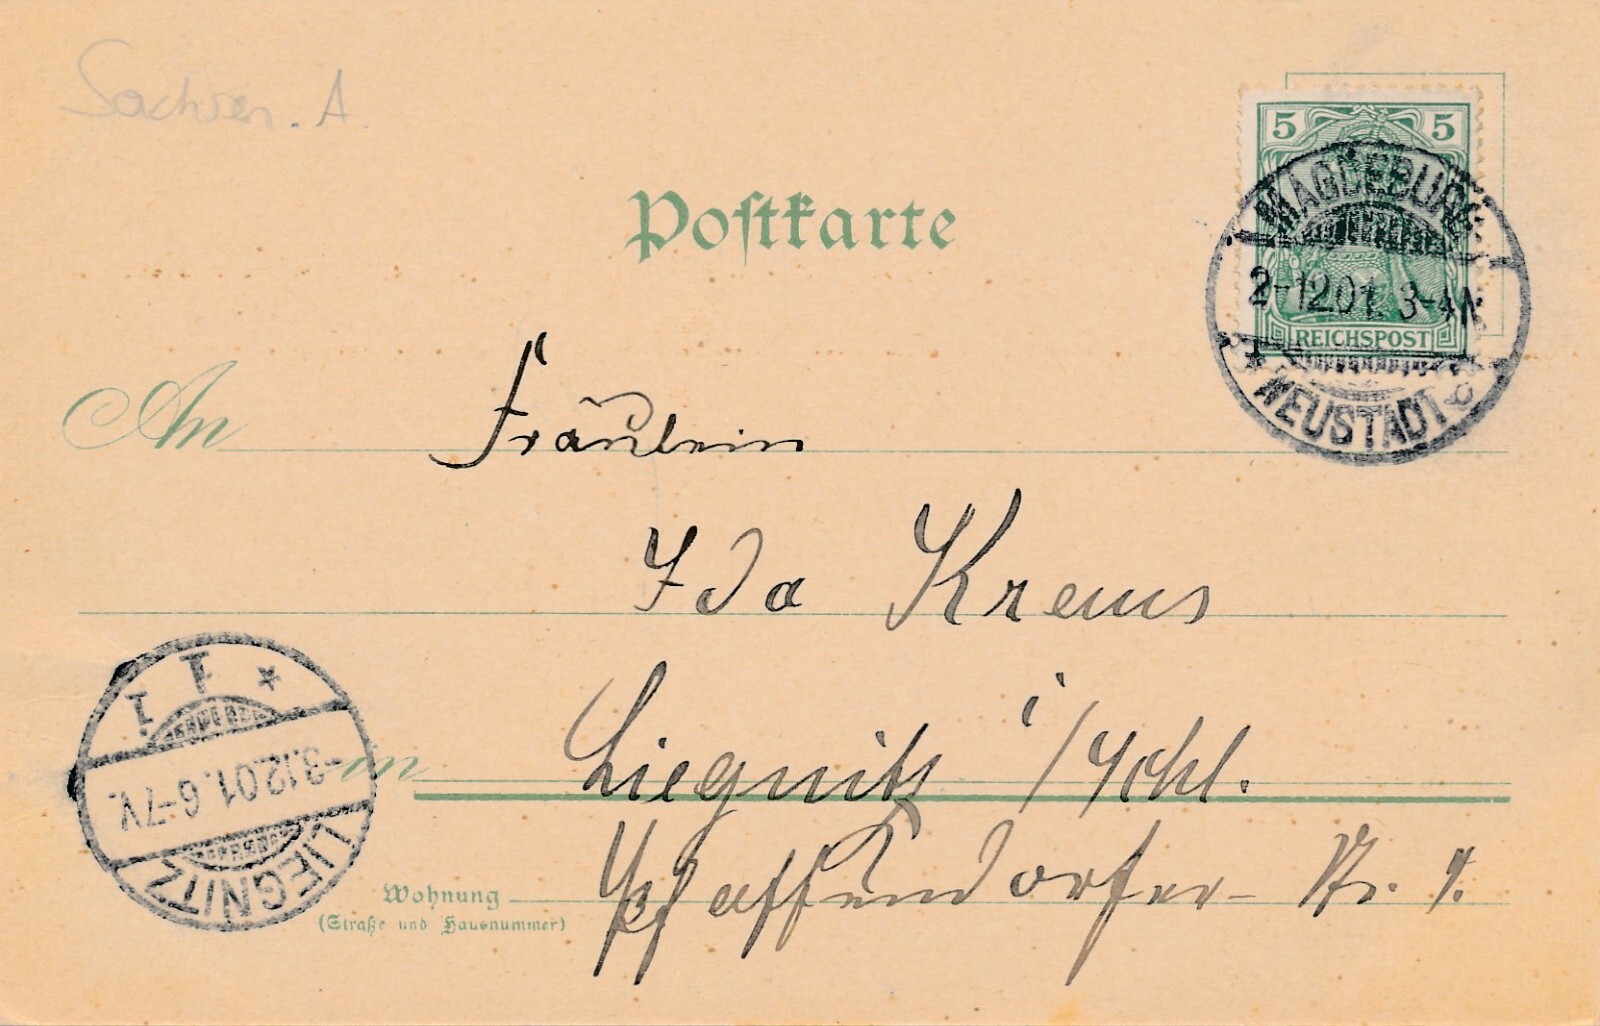 Sachsen. A.
Postkarte
5 5
REICHSPOST
MAGDEBURG
2-12.01. 3-4N
* NEUSTADT
An Fräulein
Ida
in Liegnitz i/Schl.
Wohnung
(Straße und Hausnummer)
Pfaffendorfer-
LIEGNITZ
-3.12.01. 6-7V.
* 1